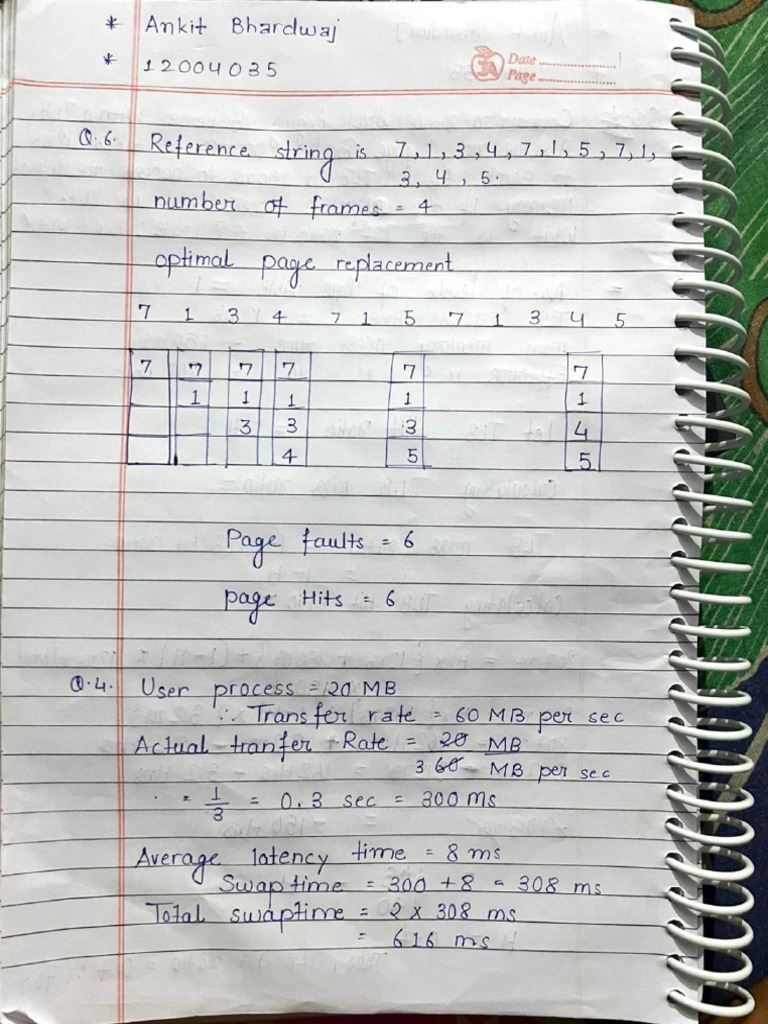 * Ankit Bhardwaj
* 12004035
JA Date
Page
Q.6. Reference string is 7,1,3,4,7,1,5,7,1,
3, 4, 5.
number of frames = 4
optimal page replacement
7 1 3 4 7 1 5 7 1 3 4 5
7 7 7 7 7 7
1 1 1 1 1
3 3 3 4
4 5 5
Page faults = 6
page Hits = 6
Q.4. User process = 20 MB
∴ Transfer rate = 60 MB per sec
Actual tranfer Rate = 20 MB
3 60 MB per sec
= 1/3 = 0.3 sec = 300 ms
Average latency time = 8 ms
Swaptime = 300 + 8 = 308 ms
Total swaptime = 2 x 308 ms
= 616 ms